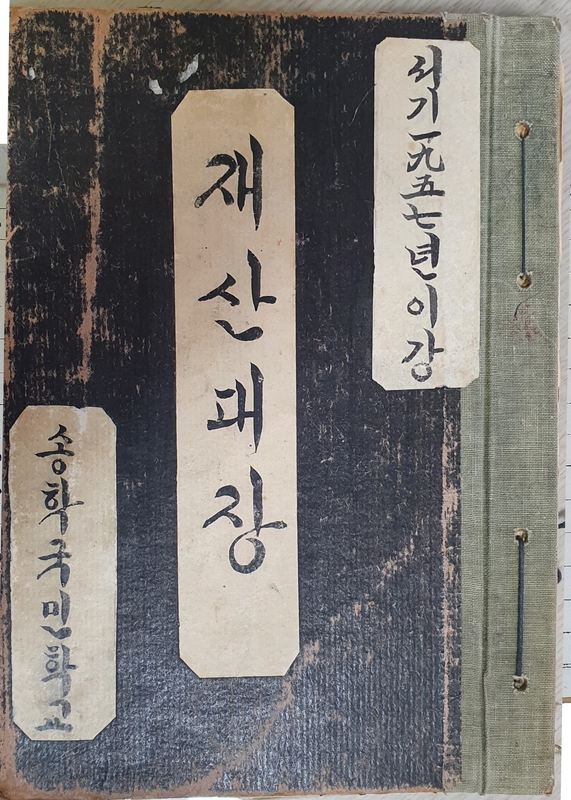 서기一九五七년이강
재산대장
송학국민학교